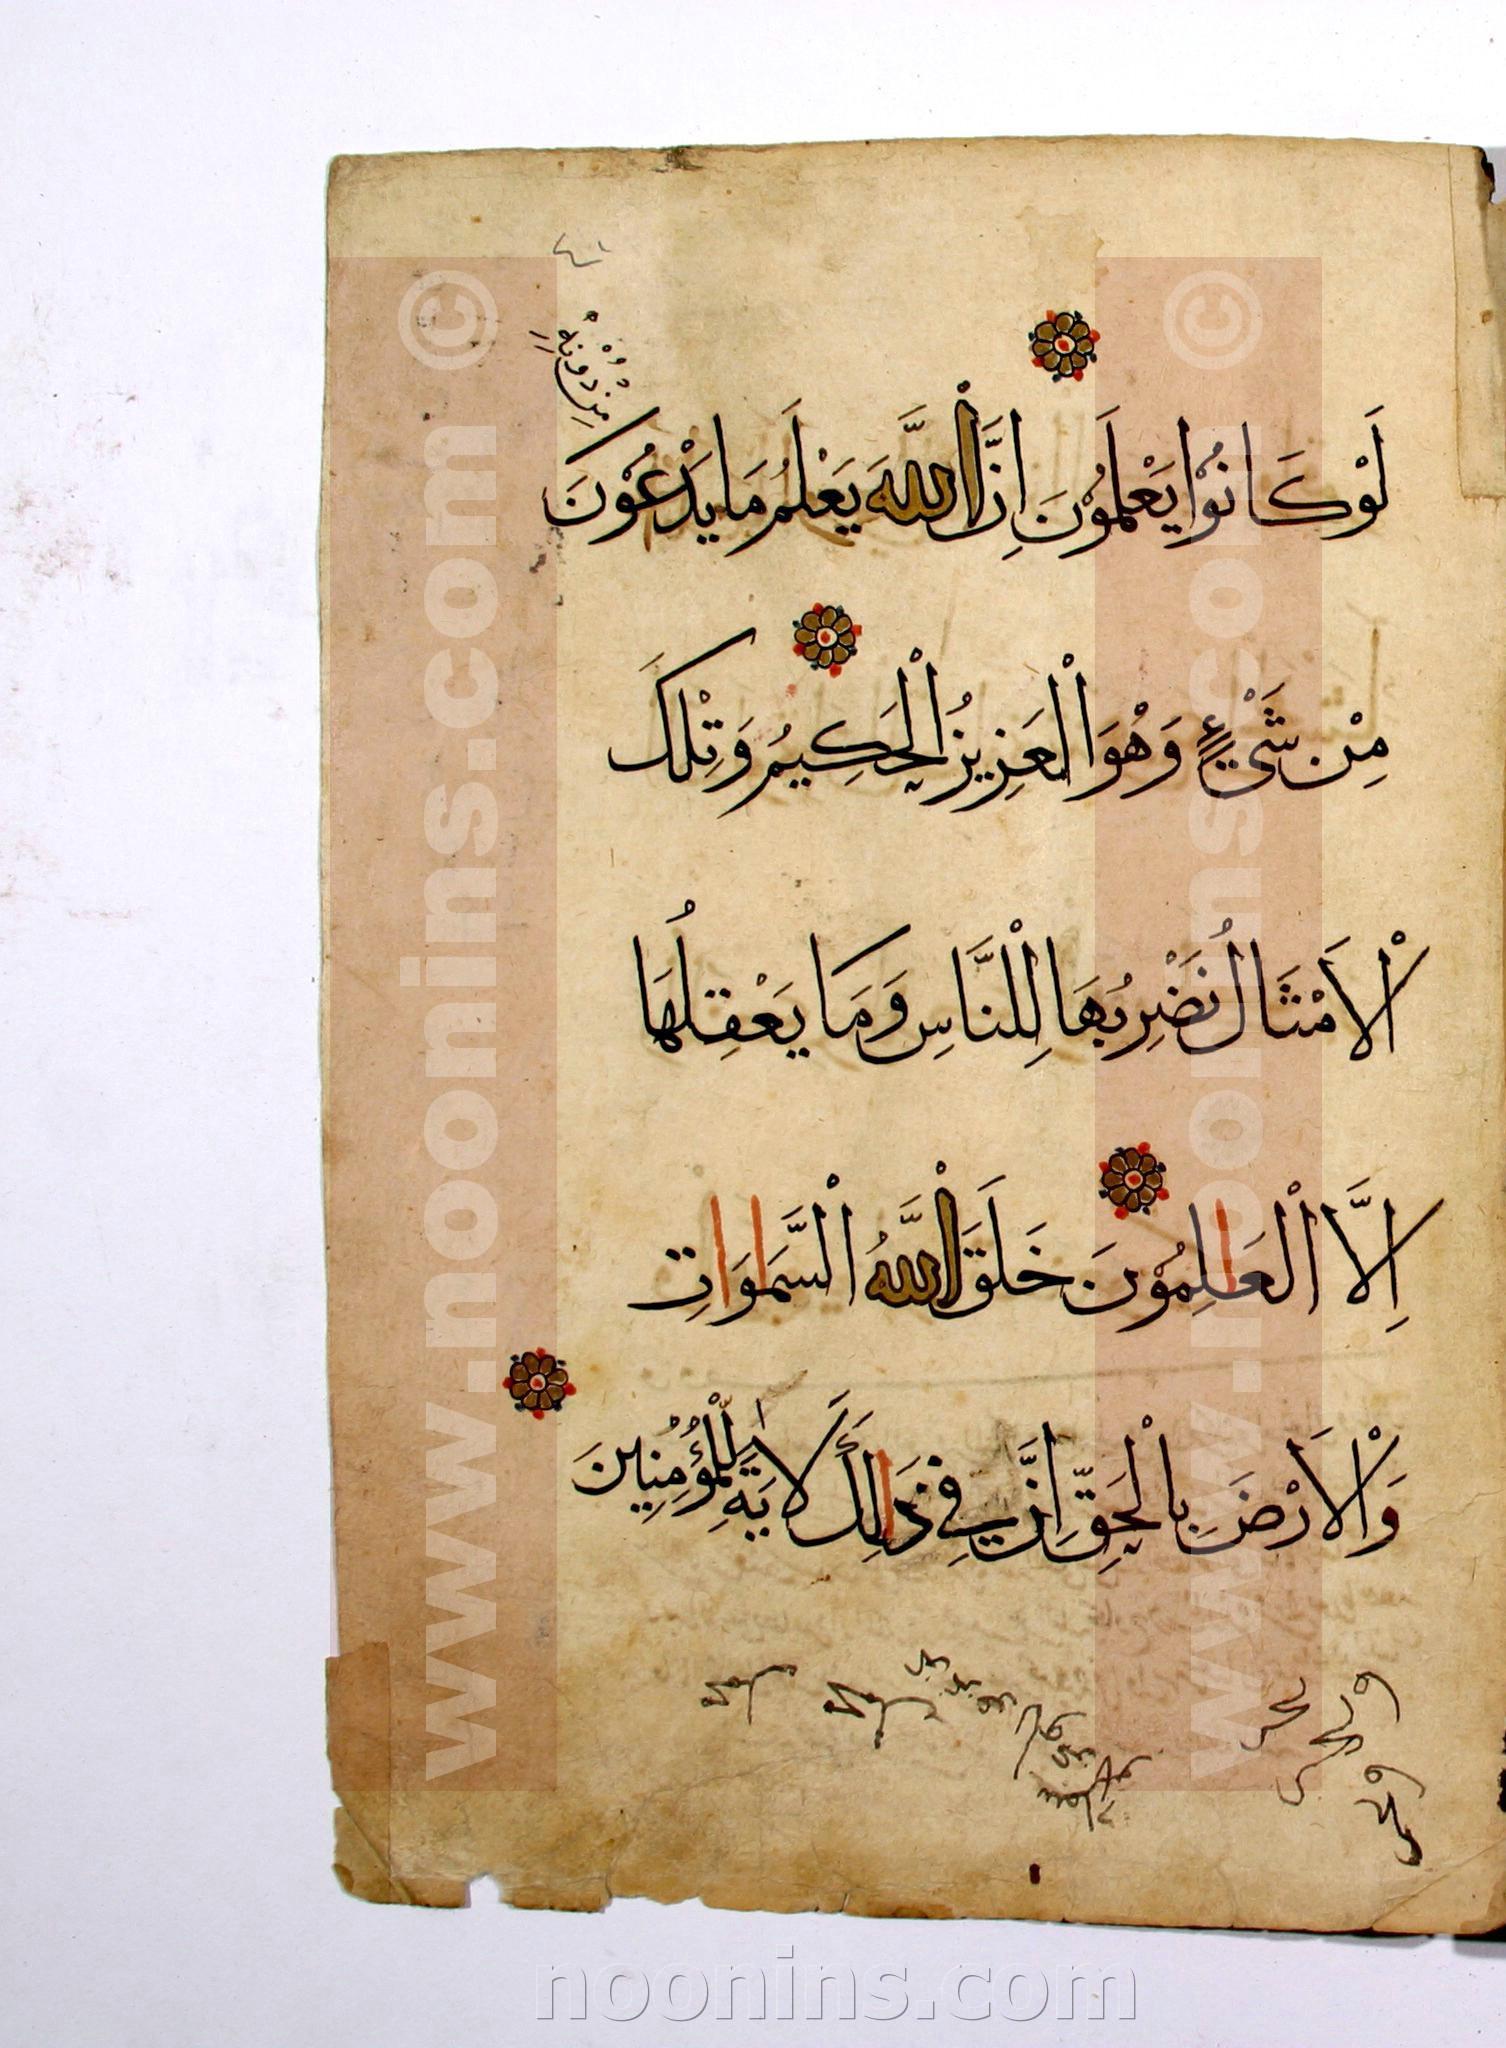 مِنْ دُوْنِهِ
لَوْ كَانُوْا يَعْلَمُوْنَ اِنَّ اللَّهَ يَعْلَمُ مَا يَدْعُوْنَ
مِنْ شَيْءٍ وَهْوَ الْعَزِيزُ الْحَكِيمُ وَتِلْكَ
الْاَمْثَالُ نَضْرِبُهَا لِلنَّاسِ وَمَا يَعْقِلُهَا
اِلَّا الْعَالِمُوْنَ خَلَقَ اللَّهُ السَّمَاوَاتِ
وَالْاَرْضَ بِالْحَقِّ اِنَّ فِي ذَالِكَ لَاٰيَةً لِلْمُؤْمِنِينَ
www.noonins.com ©
www.noonins.com ©
noonins.com